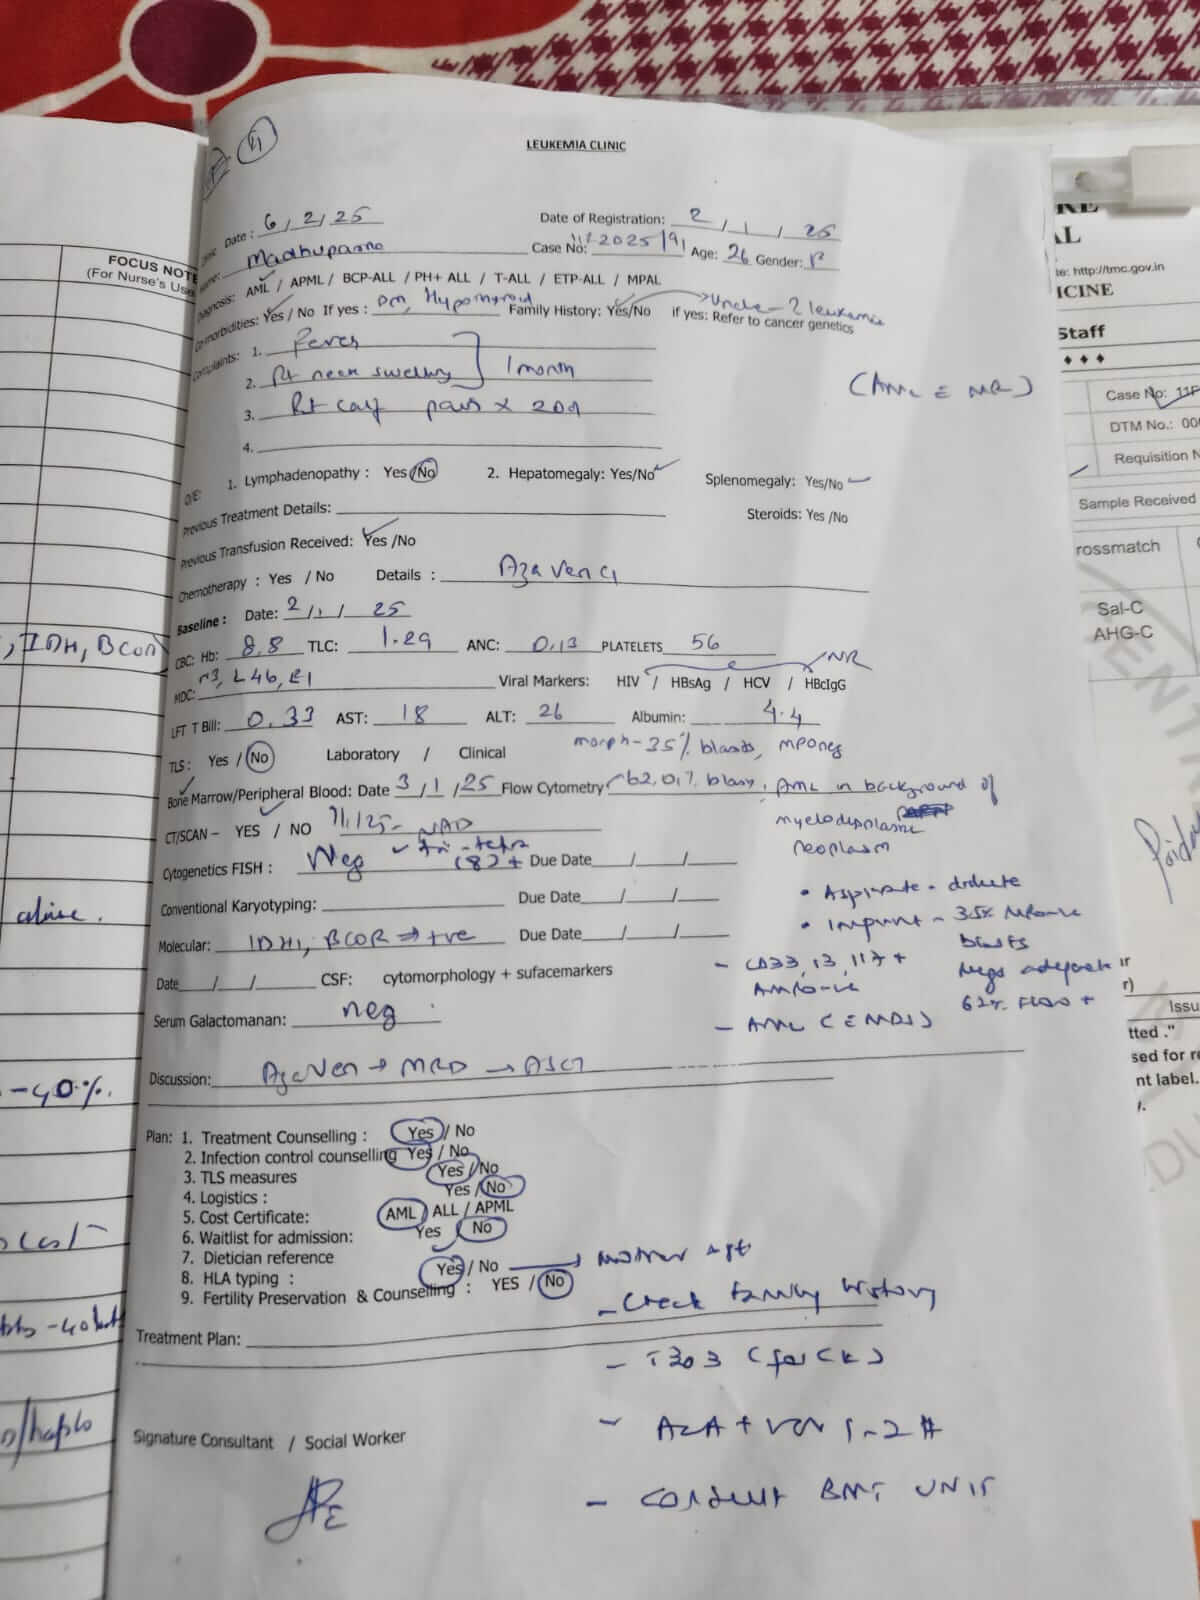 LEUKEMIA CLINIC
4
Date: 6/2/25
Date of Registration: 2/1/25
Name: Madhuparna
Case No: 2025/191 Age: 26 Gender: F
Diagnosis: AML / APML / BCP-ALL / PH+ ALL / T-ALL / ETP-ALL / MPAL
Co morbidities: Yes / No If yes : DM, Hypothyroid Family History: Yes/No if yes: Refer to cancer genetics
Uncle - ? leukemia
Complaints: 1. Fever
2. Rt neck swelling
1 month
3. Rt calf pain x 20d
4.
(AML c MR)
O/E: 1. Lymphadenopathy : Yes/No 2. Hepatomegaly: Yes/No Splenomegaly: Yes/No
Previous Treatment Details: Steroids: Yes /No
Previous Transfusion Received: Yes /No
Chemotherapy : Yes / No Details : Aza Ven C1
Baseline : Date: 2/1/25
CBC: Hb: 8.8 TLC: 1.29 ANC: 0.13 PLATELETS 56
NR
MDC: N3, L46, E1 Viral Markers: HIV / HBsAg / HCV / HBcIgG
LFT T Bill: 0.33 AST: 18 ALT: 26 Albumin: 4.4
TLS : Yes / No Laboratory / Clinical
morph - 35% blasts, MPO neg
Bone Marrow/Peripheral Blood: Date 3/1/25 Flow Cytometry 62.01% blasts, AML in background of
myelodysplastic
neoplasm
CT/SCAN – YES / NO 7/1/25 - NAD
Cytogenetics FISH : Neg tri-tetra (8)+ Due Date / /
Conventional Karyotyping: Due Date / /
Molecular: IDH1, BCOR → +ve Due Date / /
Date / / CSF: cytomorphology + sufacemarkers
Serum Galactomanan: neg
• Aspirate - dilute
• Imprint - 35% MPO-ve
blasts
Megs adequate
62% Flow +
- CD33, 13, 117 +
AMPO-ve
- AML (c MDS)
Discussion: AzaVen → MRD → ASCT
Plan: 1. Treatment Counselling : Yes / No
2. Infection control counselling Yes / No
3. TLS measures Yes / No
4. Logistics : Yes / No
5. Cost Certificate: AML / ALL / APML
6. Waitlist for admission: Yes / No
7. Dietician reference
8. HLA typing : Yes / No
9. Fertility Preservation & Counselling : YES / No
- Check family history
Treatment Plan:
- AZA + VEN 1-2 #
- consult BMT UNIT
Signature Consultant / Social Worker
FOCUS NOTE
(For Nurse's Use
, IDH, BCOR
-40%.
/haplo
te: http://tmc.gov.in
ICINE
Staff
Case No: 11P
DTM No.: 00
Requisition N
Sample Received
rossmatch
Sal-C
AHG-C
Issu
tted ."
sed for re
nt label.